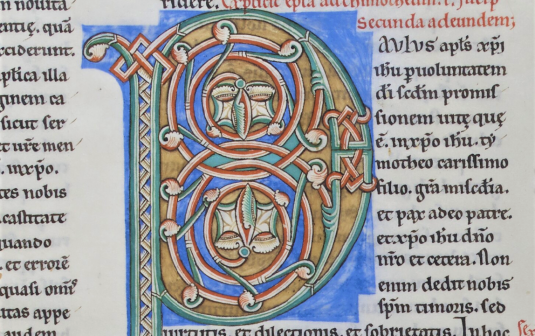 noluita
entię. quā
xciderunt.
aplica illa
ginem ca
sicut ser
et ur̄e men
. inxp̄o.
tes nobis
castitate
quando
. et errorē
quasi om̄s
uitas appe
andem
ridere. Explicit epl̄a ad thimotheum .I. Incip̄
Secunda ad eundem;
PAULUS apl̄s xp̄i
ih̄u p uoluntatem
di sc̄dm promis
sionem uitę quę
ē. in xp̄o ih̄u. ty
motheo carissimo
filio. gr̄a misc̄dia.
et pax a deo patre.
et xp̄o ih̄u dn̄o
nr̄o et cetera. Non
enim dedit nobis
sp̄m timoris. sed
uirtutis et dilectionis. et sobrietatis. In hac